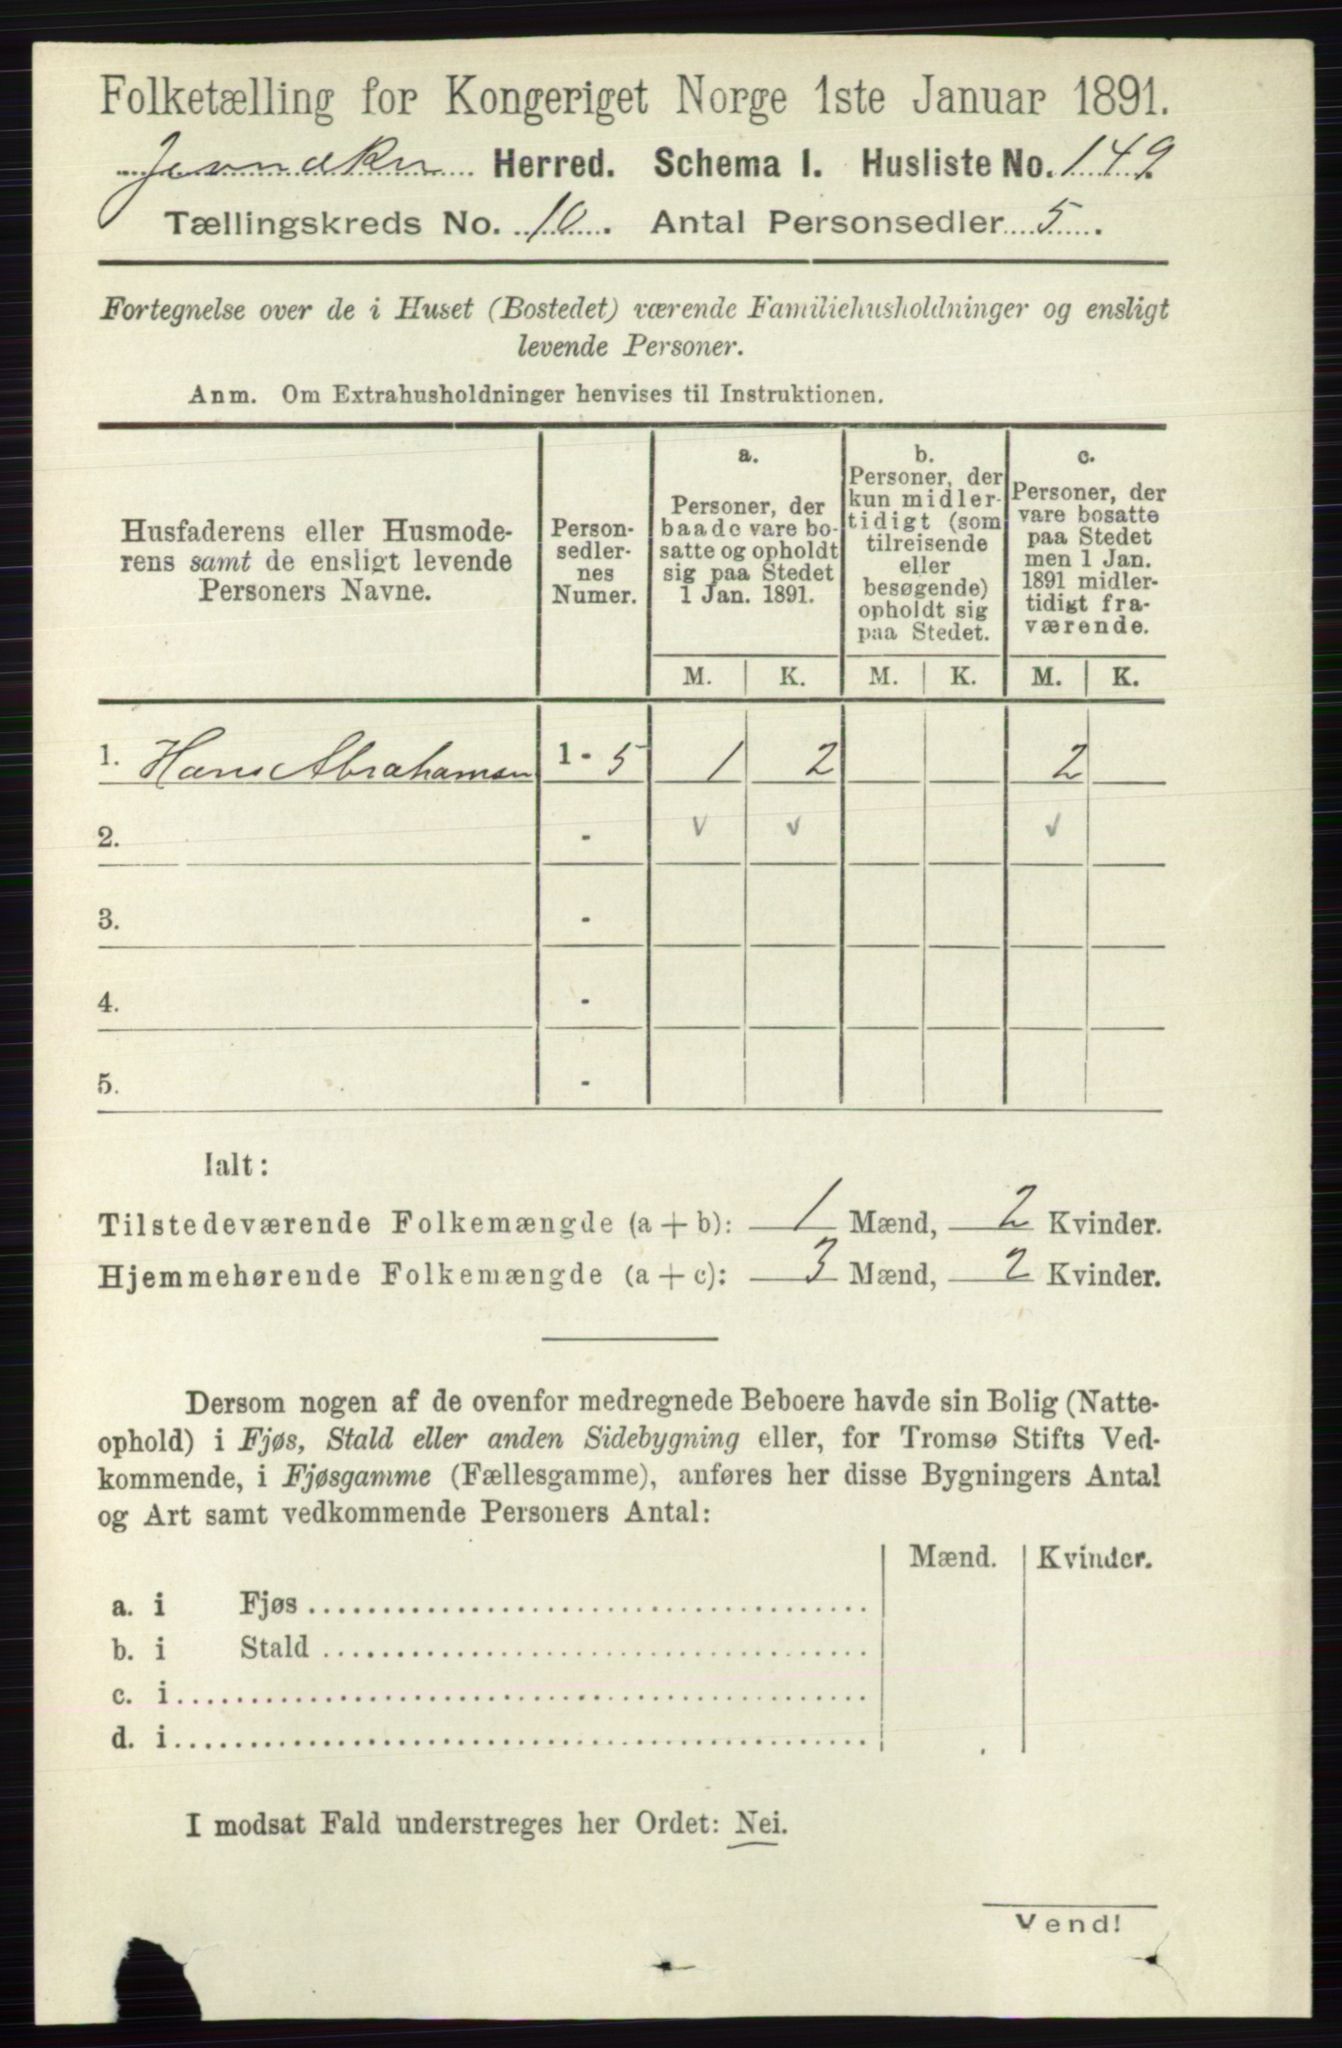 Folketælling for Kongeriget Norge 1ste Januar 1891.
Jevnaker Herred. Schema I. Husliste No. 149
Tællingskreds No. 10. Antal Personsedler 5.
Fortegnelse over de i Huset (Bostedet) værende Familiehusholdninger og ensligt
levende Personer.
Anm. Om Extrahusholdninger henvises til Instruktionen.
Husfaderens eller Husmode-
rens samt de ensligt levende
Personers Navne.
Person-
sedler-
nes
Numer.
a.
Personer, der
baade vare bo-
satte og opholdt
sig paa Stedet
1 Jan. 1891.
b.
Personer, der
kun midler-
tidigt (som
tilreisende
eller
besøgende)
opholdt sig
paa Stedet.
c.
Personer, der
vare bosatte
paa Stedet
men 1 Jan.
1891 midler-
tidigt fra-
værende.
M. K. M. K. M. K.
1. Hans Abrahamsen 1 - 5 1 2 2
2. - v v v
3. -
4. -
5. -
Ialt:
Tilstedeværende Folkemængde (a + b): 1 Mænd, 2 Kvinder.
Hjemmehørende Folkemængde (a + c): 3 Mænd, 2 Kvinder.
Dersom nogen af de ovenfor medregnede Beboere havde sin Bolig (Natte-
ophold) i Fjøs, Stald eller anden Sidebygning eller, for Tromsø Stifts Ved-
kommende, i Fjøsgamme (Fællesgamme), anføres her disse Bygningers Antal
og Art samt vedkommende Personers Antal:
Mænd. Kvinder.
a. i Fjøs
b. i Stald
c. i
d. i
I modsat Fald understreges her Ordet: Nei.
Vend!